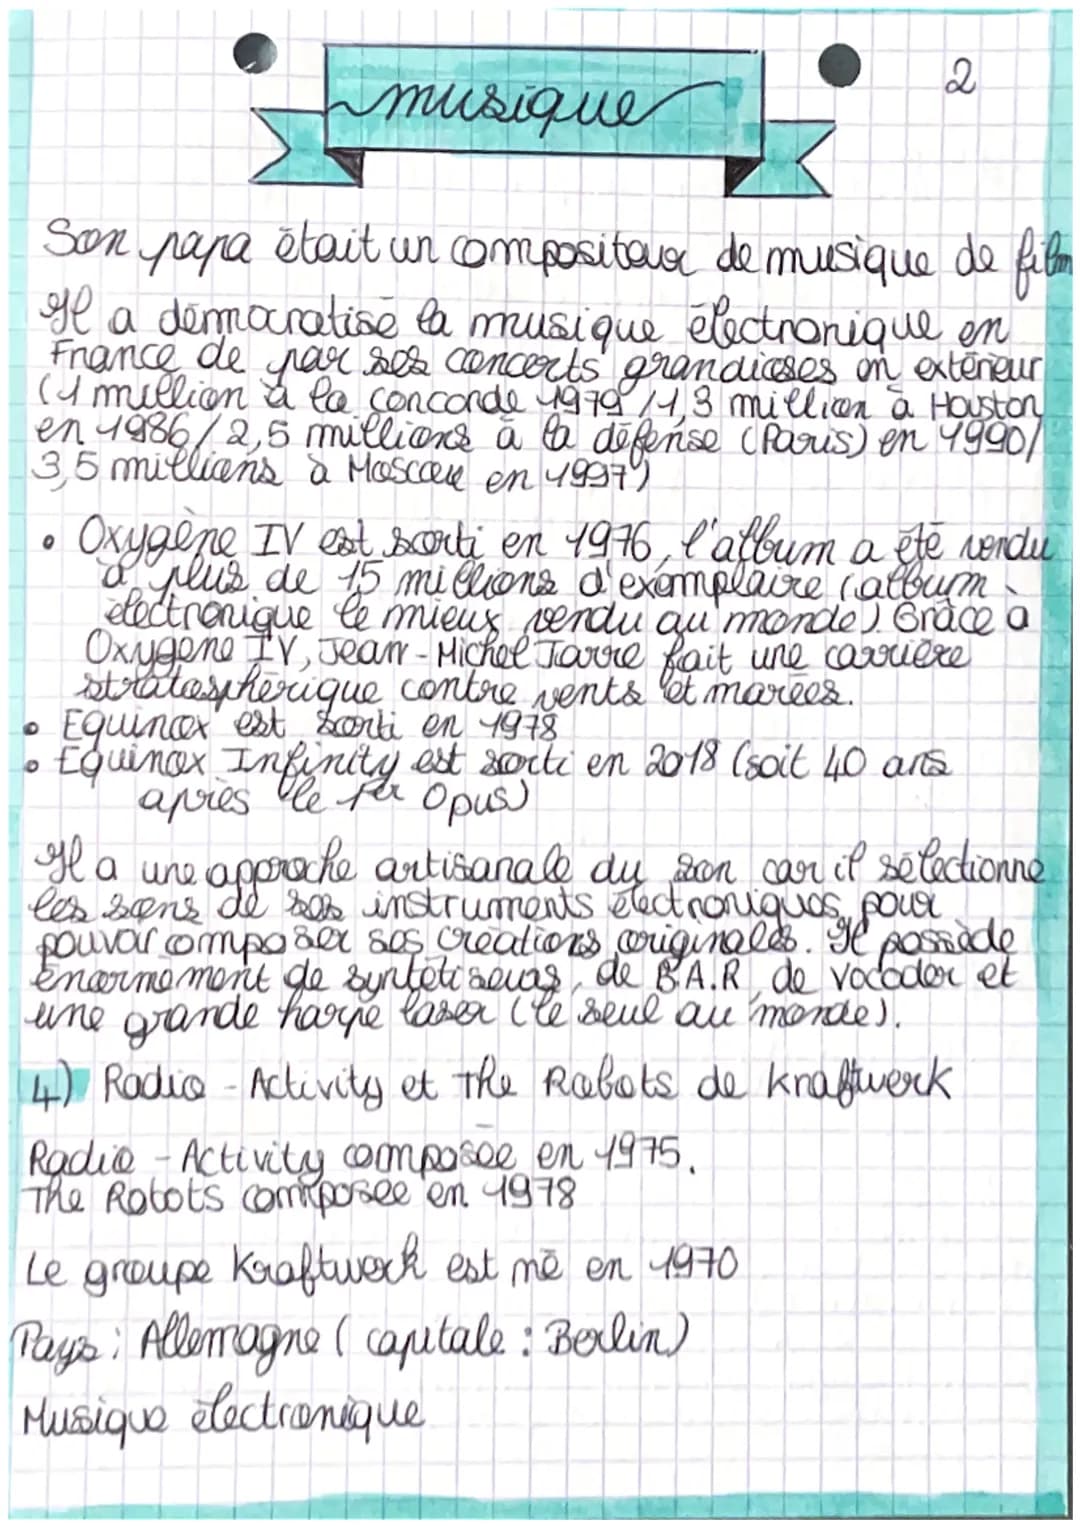 musique
2
Son papa était un compositeur de musique de film
Il a démocratisé la musique électronique en
France de par ses concerts grandioses en extérieur
(1 million à la concorde 1979 / 1,3 million à Houston
en 1986 / 2,5 millions à la défense (Paris) en 1990/
3,5 millions à Moscou en 1997)
• Oxygène IV est sorti en 1976, l'album a été vendu
à plus de 15 millions d'exemplaire (album
électronique le mieux vendu au monde). Grâce à
Oxygene IV, Jean-Michel Jarre fait une carrière
stratosphérique contre vents et marées.
• Equinox est sorti en 1978
• Equinox Infinity est sorti en 2018 (soit 40 ans
après le 1er Opus)
Il a une approche artisanale du son car il sélectionne
les sons de ses instruments électroniques pour
pouvoir composer ses créations originales. Il possède
énormement de syntétiseurs, de B.A.R, de vocoder et
une grande harpe laser (le seul au monde).
4) Radio - Activity et The Robots de kraftwerk
Radio - Activity composée en 1975.
The Robots composée en 1978
Le groupe Kraftwerk est né en 1970
Pays : Allemagne (capitale : Berlin)
Musique électronique